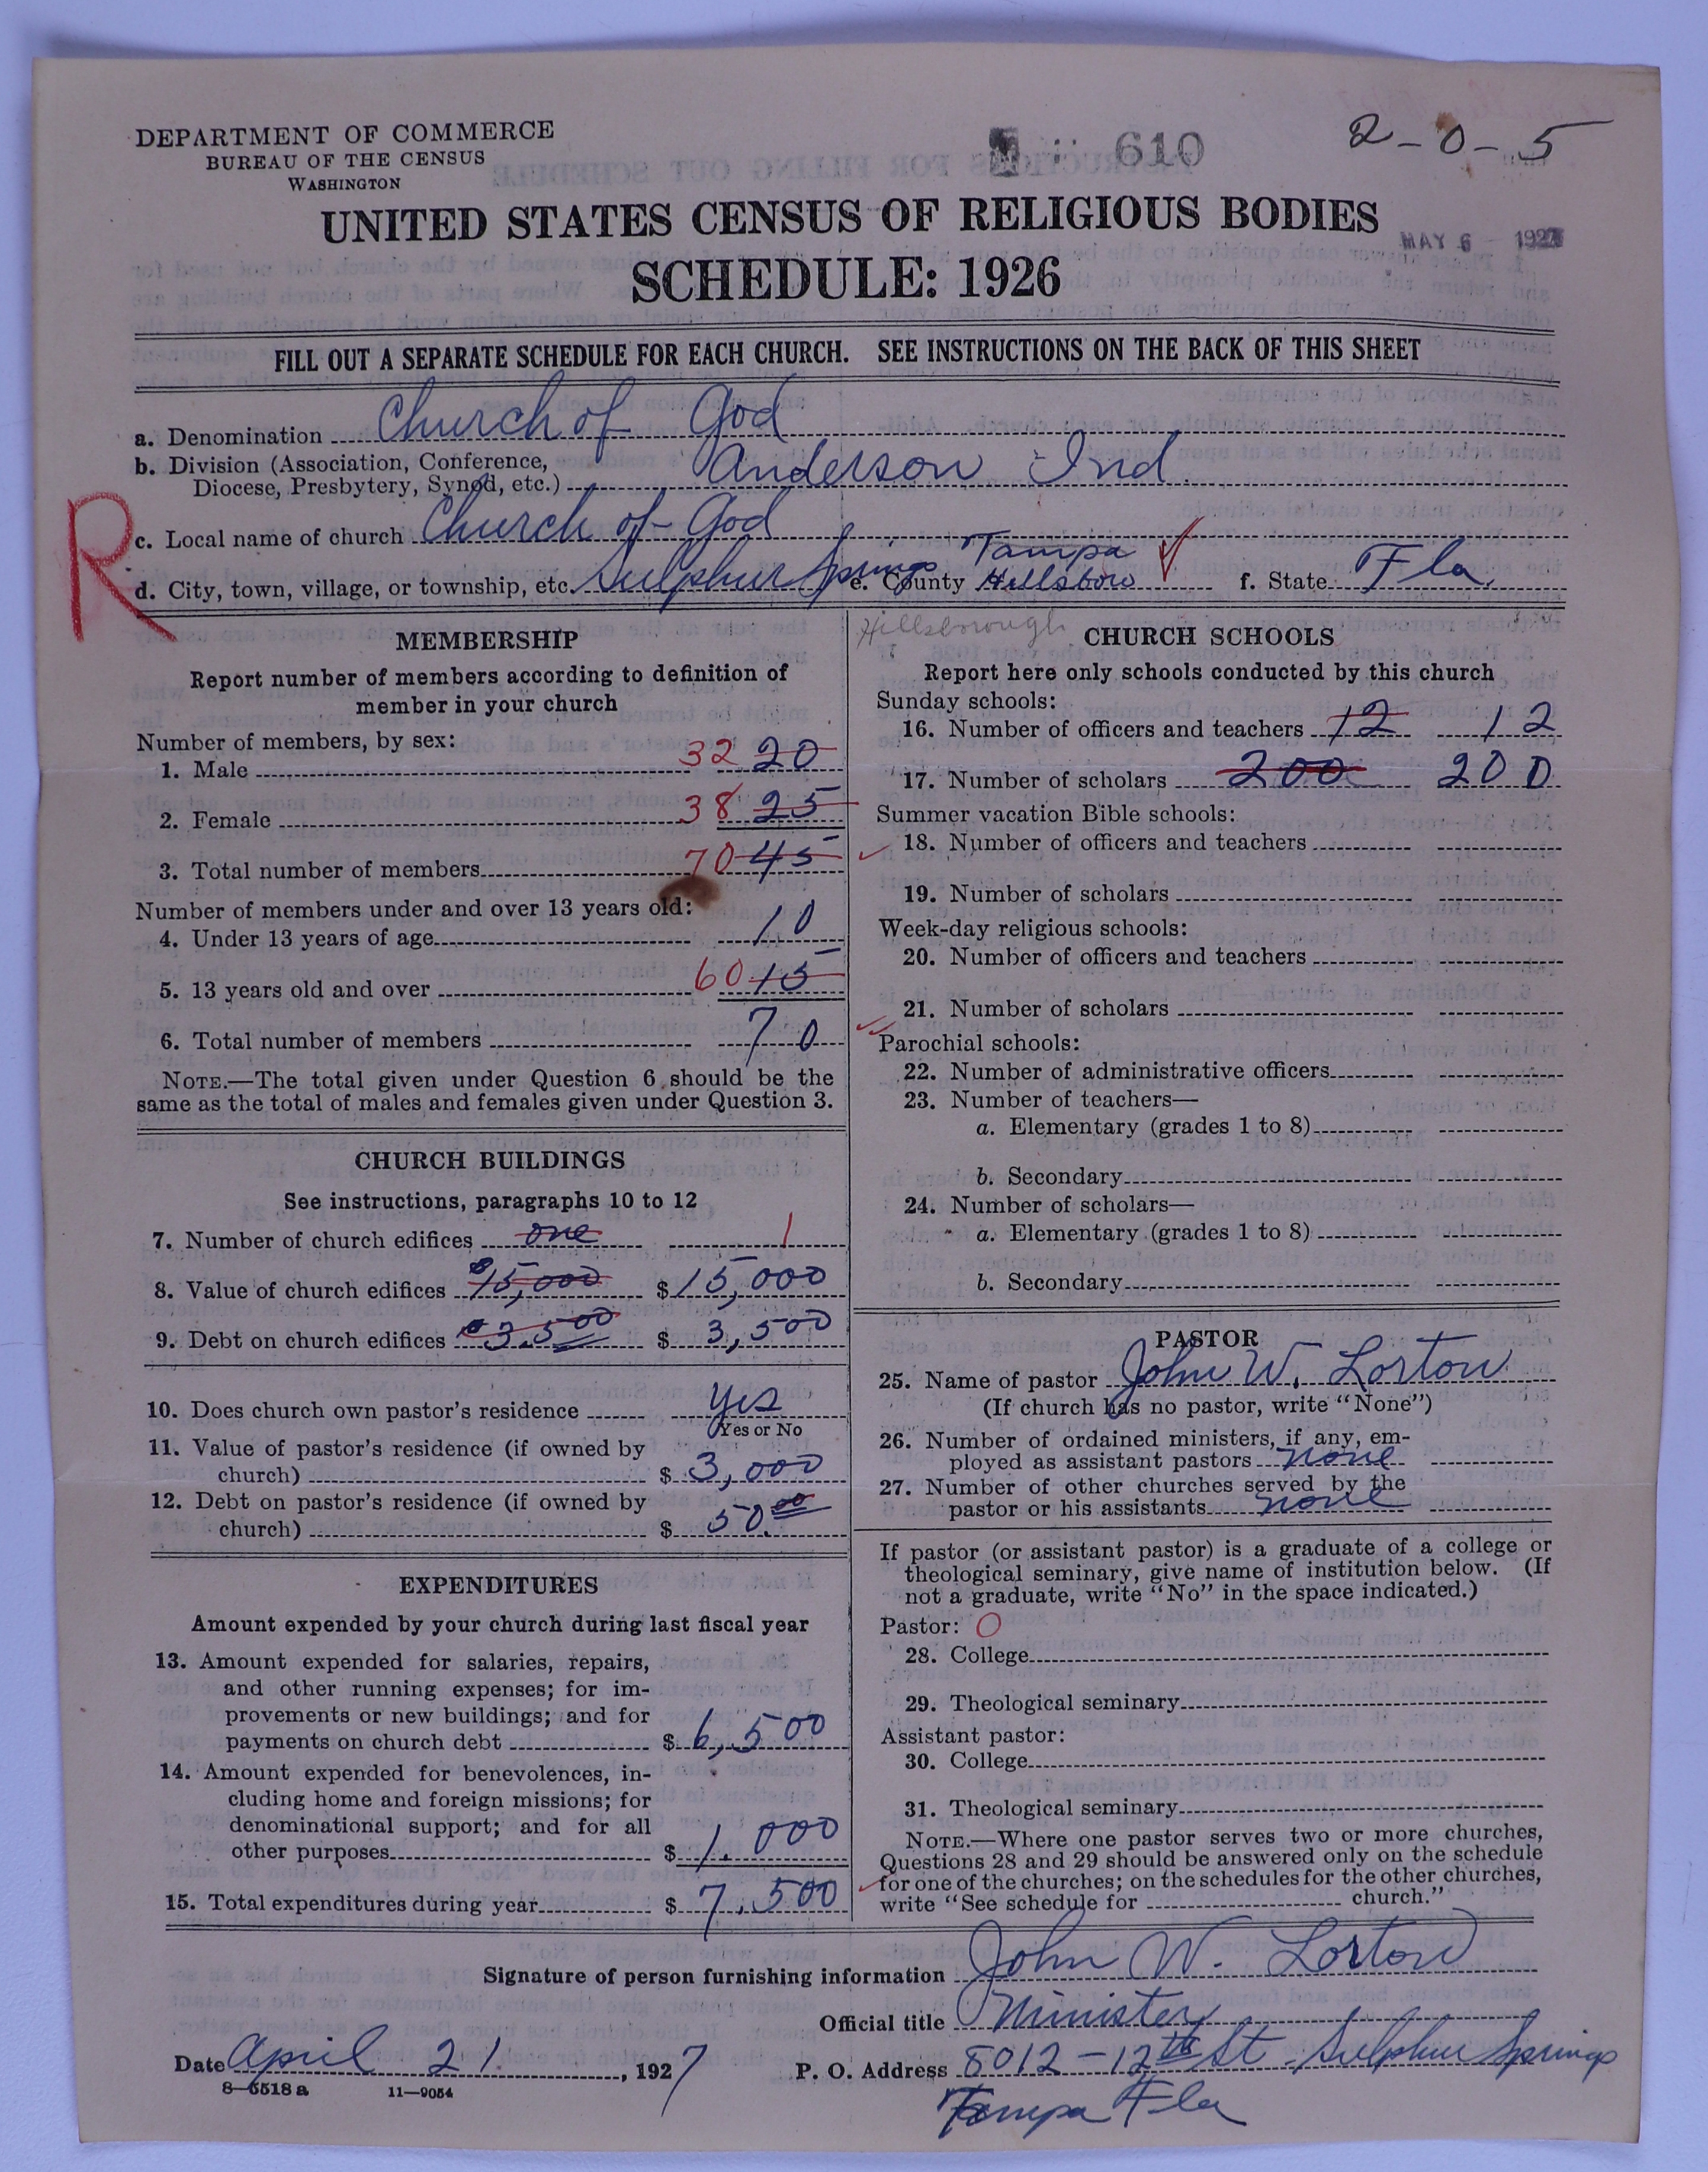 DEPARTMENT OF COMMERCE
BUREAU OF THE CENSUS
WASHINGTON
610
2-0-5
UNITED STATES CENSUS OF RELIGIOUS BODIES
MAY 6 1927
SCHEDULE: 1926
FILL OUT A SEPARATE SCHEDULE FOR EACH CHURCH. SEE INSTRUCTIONS ON THE BACK OF THIS SHEET
a. Denomination Church of God
b. Division (Association, Conference, Diocese, Presbytery, Synod, etc.) Anderson Ind
R
c. Local name of church Church of God
Tampa
d. City, town, village, or township, etc. Sulphur Springs e. County Hillsboro f. State Fla.
Hillsborough
MEMBERSHIP
Report number of members according to definition of
member in your church
Number of members, by sex:
1. Male 32 20
2. Female 38 25
3. Total number of members 70 45
Number of members under and over 13 years old:
4. Under 13 years of age 10
5. 13 years old and over 60 15
6. Total number of members 70
NOTE.—The total given under Question 6 should be the
same as the total of males and females given under Question 3.
CHURCH BUILDINGS
See instructions, paragraphs 10 to 12
7. Number of church edifices one 1
8. Value of church edifices $15,000 $ 15,000
9. Debt on church edifices $3.500 $ 3,500
10. Does church own pastor's residence yes
Yes or No
11. Value of pastor's residence (if owned by
church) $ 3,000
12. Debt on pastor's residence (if owned by
church) $ 50.00
EXPENDITURES
Amount expended by your church during last fiscal year
13. Amount expended for salaries, repairs,
and other running expenses; for im-
provements or new buildings; and for
payments on church debt $ 6,500
14. Amount expended for benevolences, in-
cluding home and foreign missions; for
denominational support; and for all
other purposes $ 1.000
15. Total expenditures during year $ 7.500
CHURCH SCHOOLS
Report here only schools conducted by this church
Sunday schools:
16. Number of officers and teachers 12 12
17. Number of scholars 200 200
Summer vacation Bible schools:
18. Number of officers and teachers
19. Number of scholars
Week-day religious schools:
20. Number of officers and teachers
21. Number of scholars
Parochial schools:
22. Number of administrative officers
23. Number of teachers—
a. Elementary (grades 1 to 8)
b. Secondary
24. Number of scholars—
a. Elementary (grades 1 to 8)
b. Secondary
PASTOR
25. Name of pastor John W. Lorton
(If church has no pastor, write "None")
26. Number of ordained ministers, if any, em-
ployed as assistant pastors none
27. Number of other churches served by the
pastor or his assistants none
If pastor (or assistant pastor) is a graduate of a college or
theological seminary, give name of institution below. (If
not a graduate, write "No" in the space indicated.)
Pastor: O
28. College
29. Theological seminary
Assistant pastor:
30. College
31. Theological seminary
NOTE.—Where one pastor serves two or more churches,
Questions 28 and 29 should be answered only on the schedule
for one of the churches; on the schedules for the other churches,
write "See schedule for church."
Signature of person furnishing information John W. Lorton
Official title Minister
Date April 21, 1927 P. O. Address 8012-12th St. Sulphur Springs
8—5518a 11—9054
Tampa Fla